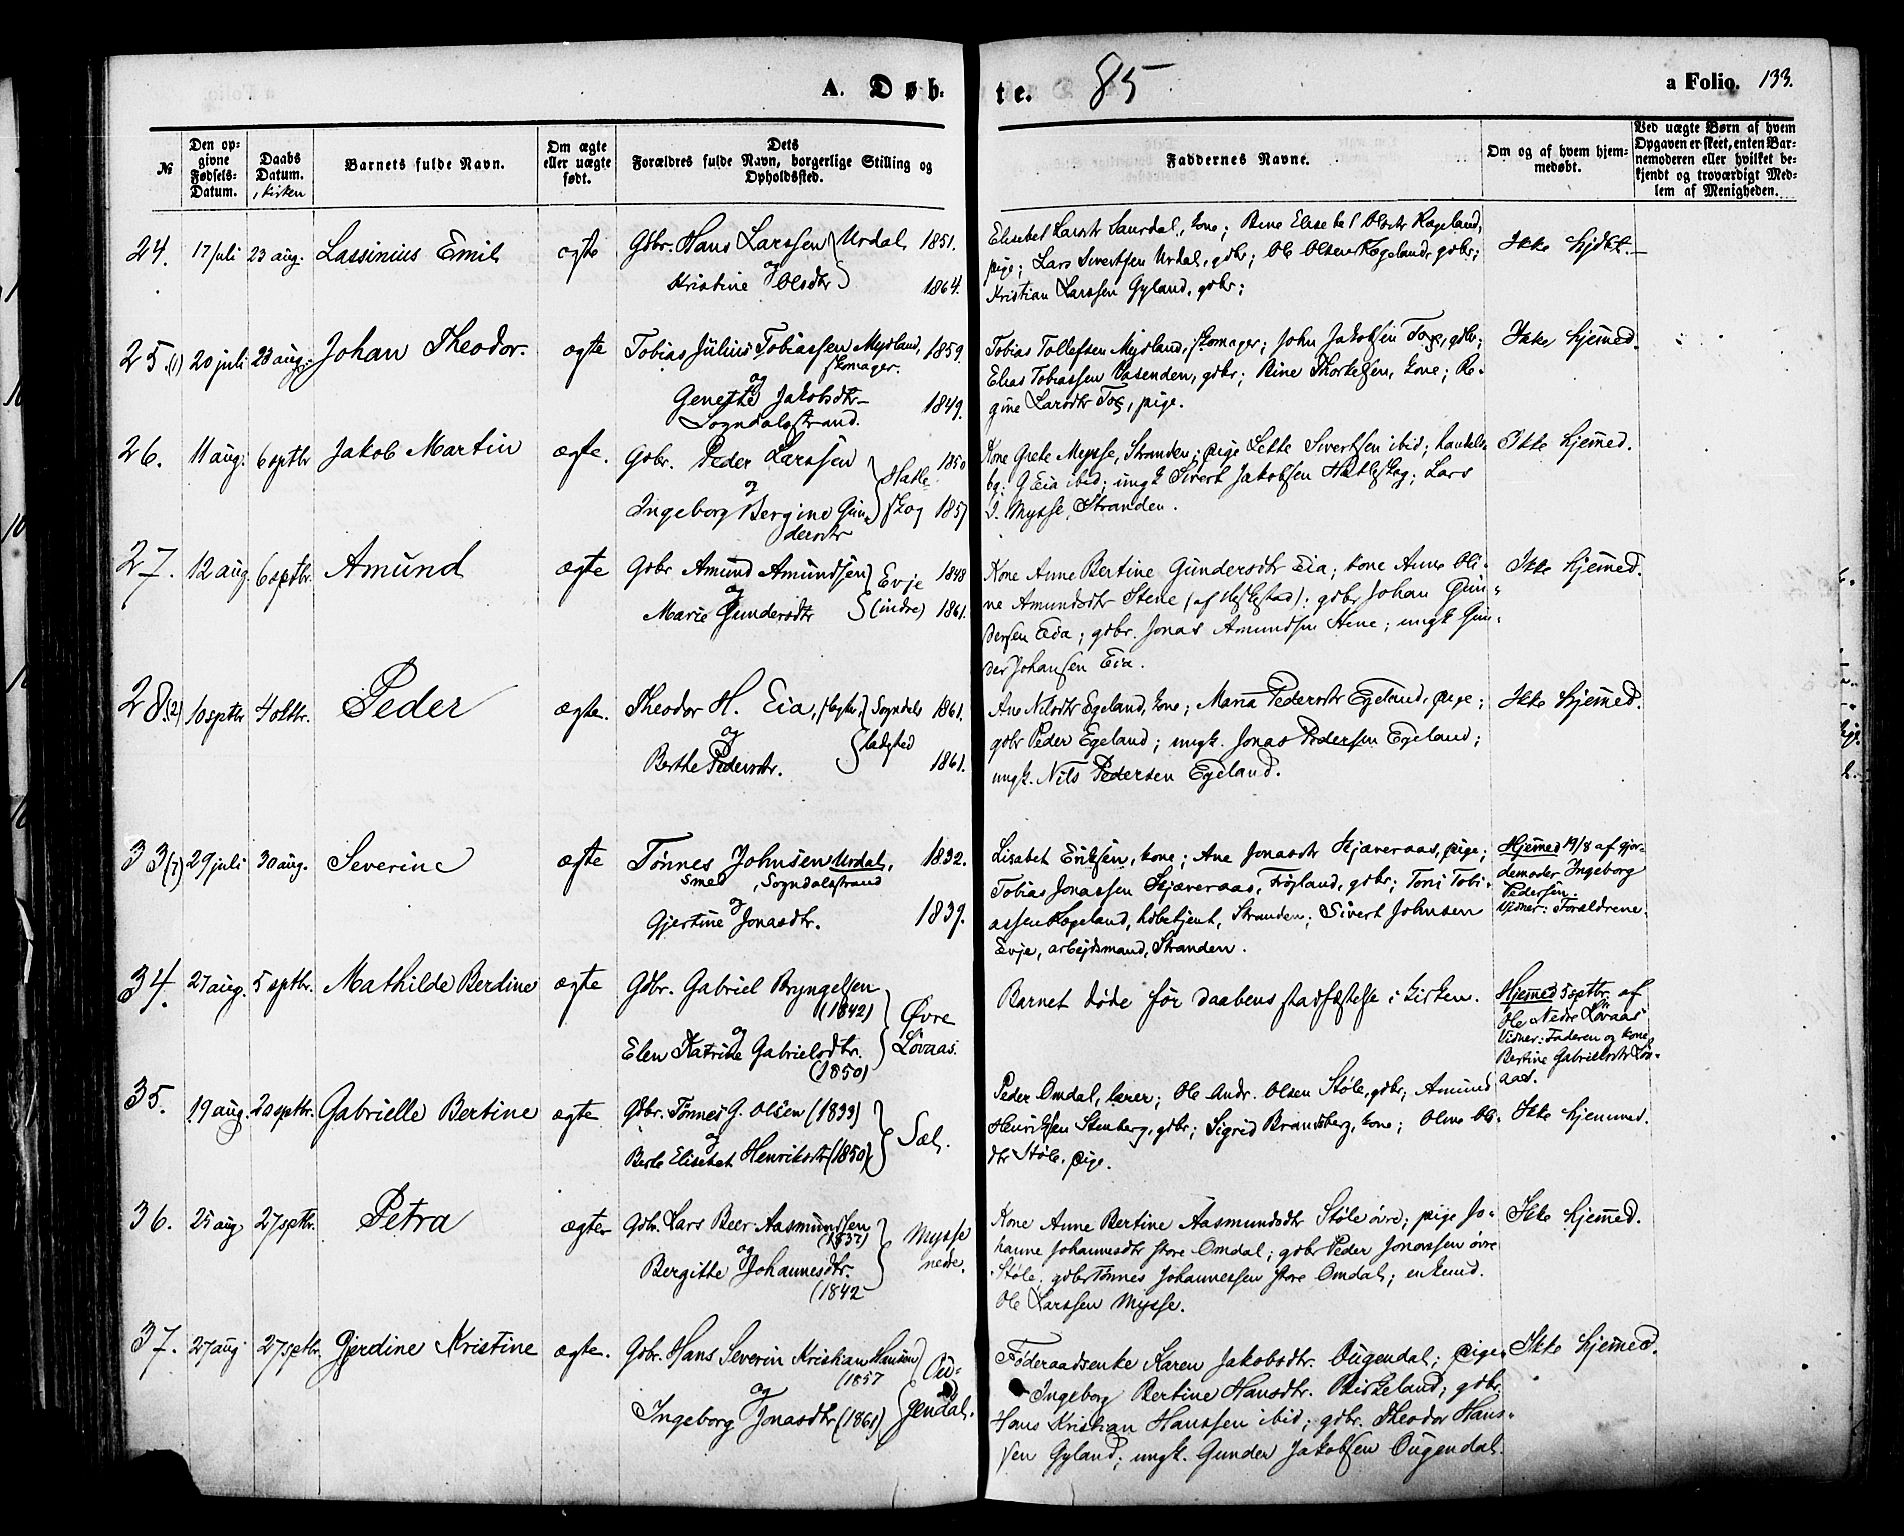 A. Døb-
te.
85
a Folio. 133.
№
Den op-
givne
Fødsels-
Datum.
Daabs
Datum.
, kirken
Barnets fulde Navn.
Om ægte
eller uægte
født.
Dets
Forældres fulde Navn, borgerlige Stilling og
Opholdssted.
Faddernes Navne.
Om og af hvem hjem-
medøbt.
Ved uægte Børn af hvem
Opgaven er skeet, enten Bar-
nemoderen eller hvilket be-
kjendt og troværdigt Med-
lem af Menigheden.
24. 17 juli 23 aug. Lassinius Emil ægte
Gdbr. Hans Larssen Urdal 1851.
og
Kristine Olsdtr 1864.
Elisabet Larsdtr Saurdal, kone; Bine Elisabet Olsdtr Rægeland,
pige; Lars Sivertsen Urdal, gdbr; Ole Olsen Rægeland, gdbr;
Kristian Larssen Gyland, gdbr;
Ikke hjdbt.
25.(1) 20 juli 23 aug. Johan Theodor. ægte
Tobias Julius Tobiassen Mydland, 1859.
skomager.
og
Genette Jakobsdtr 1849.
Sogndalsstrand.
Tobias Tollefsen Mydland, skomager; John Jakobsen Tog, gdbr;
Elias Tobiassen Vasenden, gdbr; Bine Thorkelsen, kone; Re-
gine Larsdtr Tog, pige.
Ikke hjemmed.
26. 11 aug. 6 septbr Jakob Martin ægte.
Gdbr. Peder Larssen 1850
og
Hatle-
Ingeborg Bergine Gun- skog 1857
dersdtr
Kone Grete Mysse, Stranden; pige Lette Sivertsen ibid; handels-
bg. G Eia ibid; ungk Sivert Jakobsen Hatleskog; Lars
J. Mysse, Stranden.
Ikke hjemmed.
27. 12 aug. 6 septbr. Amund ægte
Gdbr Amund Amundsen Evje 1848
og
Marie Gundersdtr (indre) 1861.
Kone Anne Bertine Gundersdtr Eia; kone Anne Oli-
ne Amundsdtr Stene (af Heskestad); gdbr Johan Gun-
dersen Eia; gdbr. Jonas Amundsen Stene; ungk Gun-
der Johansen Eia.
Ikke hjemmed.
28.(2) 10 septbr 4 oktbr. Peder ægte.
Theodor H. Eia, Sogndals 1861.
og
ladested
Berthe Pedersdtr. 1861.
Ane Nilsdtr Egeland, kone; Maria Pedersdtr Egeland, pige;
gdbr Peder Egeland; ungk. Jonas Pedersen Egeland;
ungk. Nils Pedersen Egeland.
Ikke hjemmed.
33(7) 29 juli 30 aug. Severine ægte
Tønnes Johnsen Urdal, 1832.
smed, Sogndalsstrand
og
Gjertine Jonasdtr. 1839.
Lisabet Eriksen, kone; Ane Jonasdtr Kjæveraas, pige;
Tobias Jonassen Kjæveraas, Frøyland, gdbr; Toni Tobi-
assen Rægeland, Stranden; Sivert Johnsen
Evje, arbejdsmand, Stranden.
Hjemmed 19/8 af gjor-
demoder Ingeborg
Pedersen.
Vidner: Forældrene.
34. 27 aug. 5 septbr. Mathilde Berdine ægte
Gdbr. Gabriel Bryngelsen
(1842)
og
Øvre
Elen Katrine Gabrielsdtr. Løvaas.
(1850)
Barnet døde før daabens stadfæstelse i kirken.
Hjemmed 5 septbr. af
Ole Nedre Løvaas
Vidner: Faderen og kone
Bertine Gabrielsdtr Løv-
aas.
35. 19 aug. 20 septbr. Gabrielle Bertine ægte
Gdbr. Tønnes G. Olsen (1839)
og
Sæl.
Berte Elisebet Henriksdtr (1850)
Peder Omdal, lærer; Ole Andr. Olsen Støle, gdbr; Amund
Henriksen Stenberg, gdbr; Sigrid Brandsberg, kone; Oline Ols-
dtr Støle, pige.
Ikke hjemmed.
36. 25 aug 27 septbr. Petra ægter
Gdbr. Lars Beer Aasmundsen Mysse
(1837)
og
nedre.
Bergitte Johannesdtr.
(1842
Kone Anne Bertine Aasmundsdtr Støle øvre; pige Jo-
hanne Johannesdtr store Omdal; gdbr Peder Jonassen øvre
Støle; gdbr Tønnes Johannessen store Omdal; enkemd.
Ole Larssen Mysse.
Ikke hjemmed.
37. 27 aug 27 septbr. Gjerdine Kristine ægte.
Gdbr. Hans Severin Kristian Hansen Ou-
(1857
og
Ingeborg Jonasdtr (1861) gendal.
Føderaadsenke Karen Jakobsdtr. Ougendal; pige
Ingeborg Bertine Hansdtr. Birkeland; gdbr.
Hans Kristian Hanssen ibid; gdbr. Theodor Hans-
sen Gyland; ungk. Gunder Jakobsen Ougendal.
Ikke hjemmed.